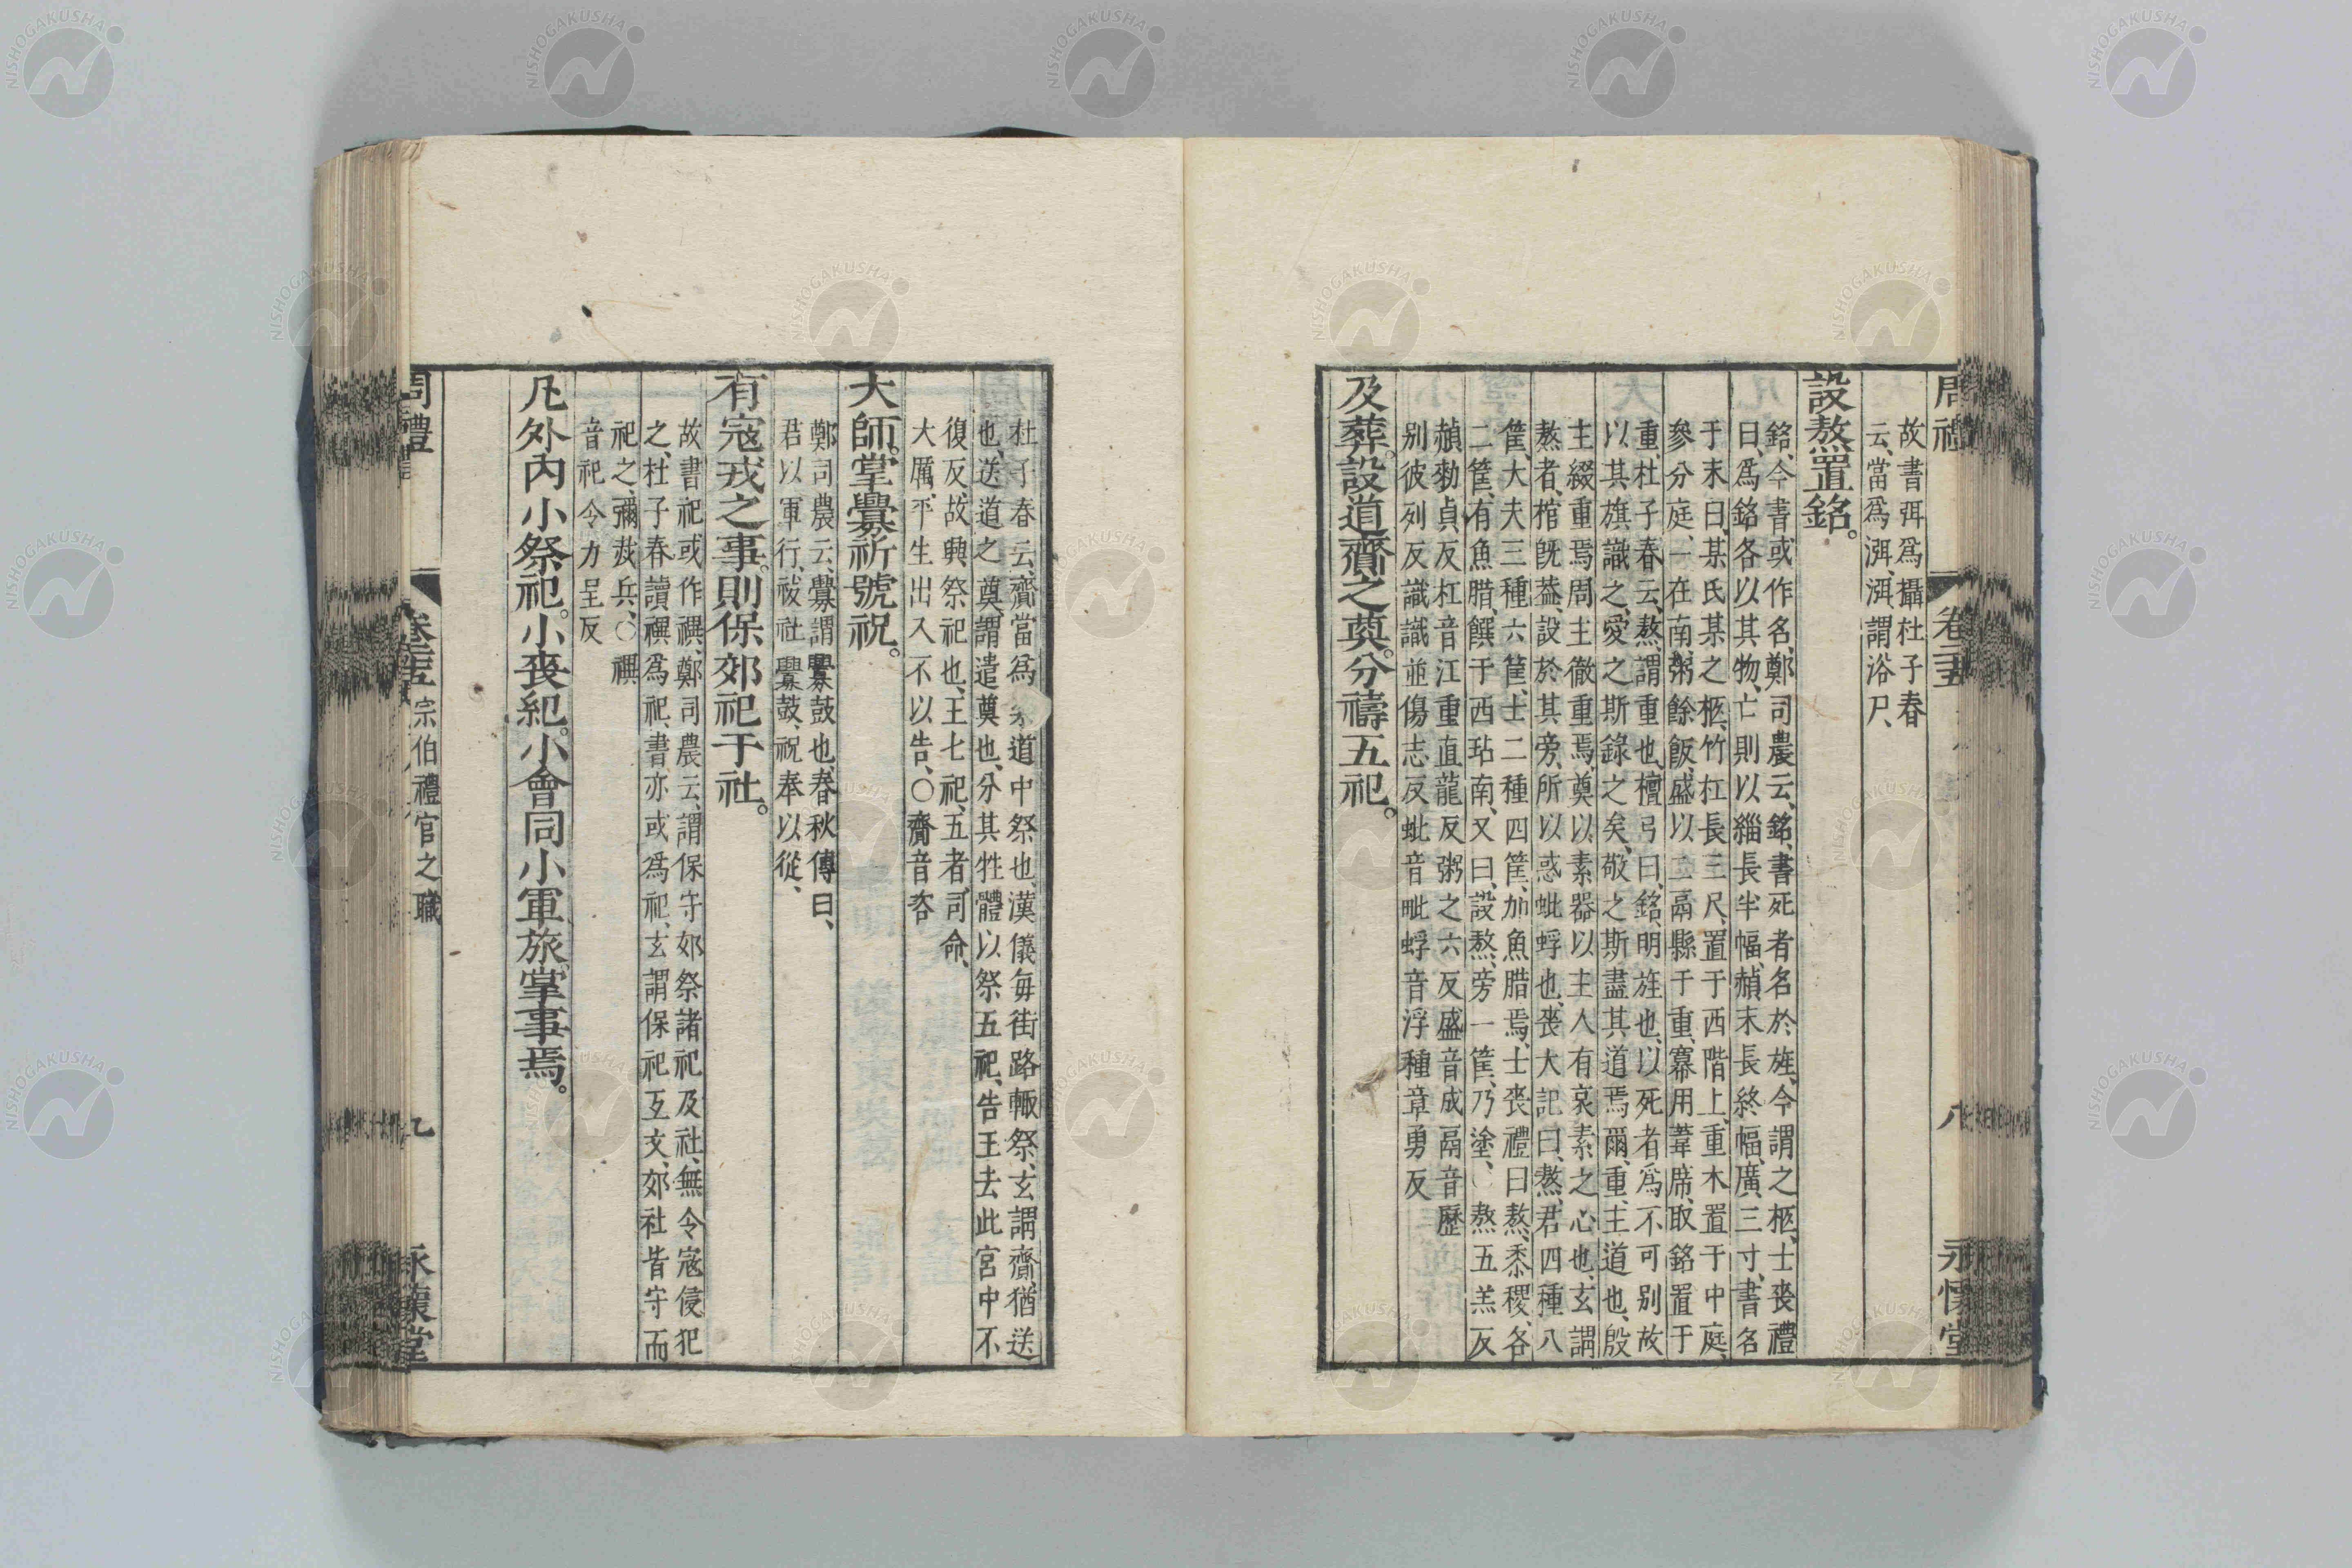 周禮 卷二十五 八 永懷堂
故書弭爲攝杜子春
云、當爲渳、渳、謂浴尸、
設熬置銘。
銘、今書或作名、鄭司農云、銘、書死者名於旌、今謂之柩、士喪禮
曰、爲銘各以其物、亡則以緇長半幅、赬末長終幅、廣三寸、書名
于末、曰、某氏某之柩、竹杠長三尺、置于西階上、重木置于中庭、
參分庭、一在南、粥餘飯、盛以二鬲縣于重、冪用葦席、取銘置于
重、杜子春云、熬、謂重也、檀弓曰、銘、明旌也、以死者爲不可别故
以其旗識之、愛之斯錄之矣、敬之斯盡其道焉爾、重、主道也、殷
主綴重焉、周主徹重焉、奠以素器以主人有哀素之心也、玄謂
熬者、棺旣葢、設於其旁、所以惑蚍蜉也、喪大記曰、熬、君四種八
筐、大夫三種六筐、士二種四筐、加魚腊焉、士喪禮曰熬、黍稷、各
二筐、有魚腊、饌于西坫南、又曰、設熬、旁一筐、乃塗、○熬五羔反
赬勑貞反杠音江重直龍反粥之六反盛音成鬲音歷
别彼列反識識並傷志反蚍音毗蜉音浮種章勇反
及葬。設道齎之奠。分禱五祀。
杜子春云、齎當爲粢道中祭也、漢儀每街路輙祭、玄謂齎、猶送
也、送道之奠、謂遣奠也、分其牲體以祭五祀、告王去此宮中不
復反故興祭祀也、王七祀、五者、司命、
大厲、平生出入不以告、○齎音咨
大師。掌釁祈號祝。
鄭司農云、釁謂釁鼓也、春秋傳曰、
君以軍行、祓社釁鼓、祝奉以從、
有寇戎之事。則保郊祀于社。
故書祀或作禩、鄭司農云、謂保守郊祭諸祀及社、無令寇侵犯
之、杜子春讀禩爲祀、書亦或爲祀、玄謂保祀互文、郊社皆守而
祀之、彌烖兵、○禩
音祀令力呈反
凡外內小祭祀。小喪紀。小會同小軍旅。掌事焉。
周禮 卷二十五 宗伯禮官之職 九 永懷堂